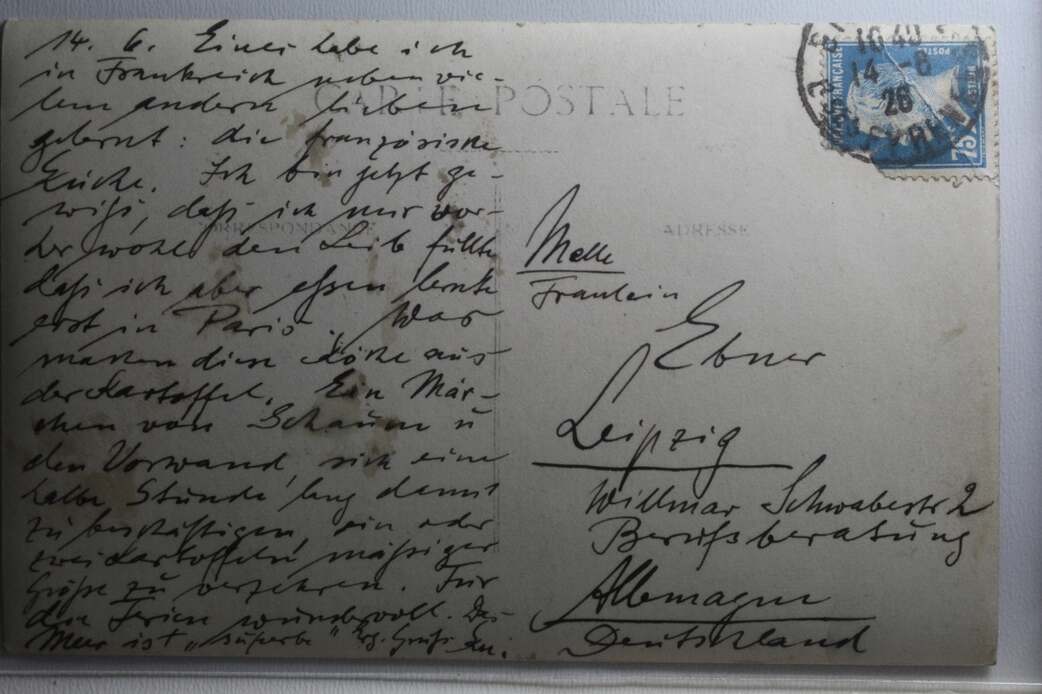 14. 6. Eines habe ich
in Frankreich neben vie-
lem andern lieben
gelernt: die französische
Küche. Ich bin jetzt ge-
wiß, daß ich mir vor-
her wohl den Leib füllte
daß ich aber essen lernte
erst in Paris. Was
machen diese Köche aus
der Kartoffel. Ein Mär-
chen von Schaum u
den Vorwand, sich eine
halbe Stunde lang damit
zu beschäftigen, ein oder
zwei Kartoffeln mäßiger
Größe zu verzehren. Für
die Ferien wundervoll. Das
Meer ist "superbe" Gruß
CARTE POSTALE
CORRESPONDANCE
ADRESSE
16 40
14 - 6
26
POSTES
75
Melle
Fräulein
Ebner
Leipzig
Willmar Schwabestr 2
Berufsberatung
Allemagne
Deutschland